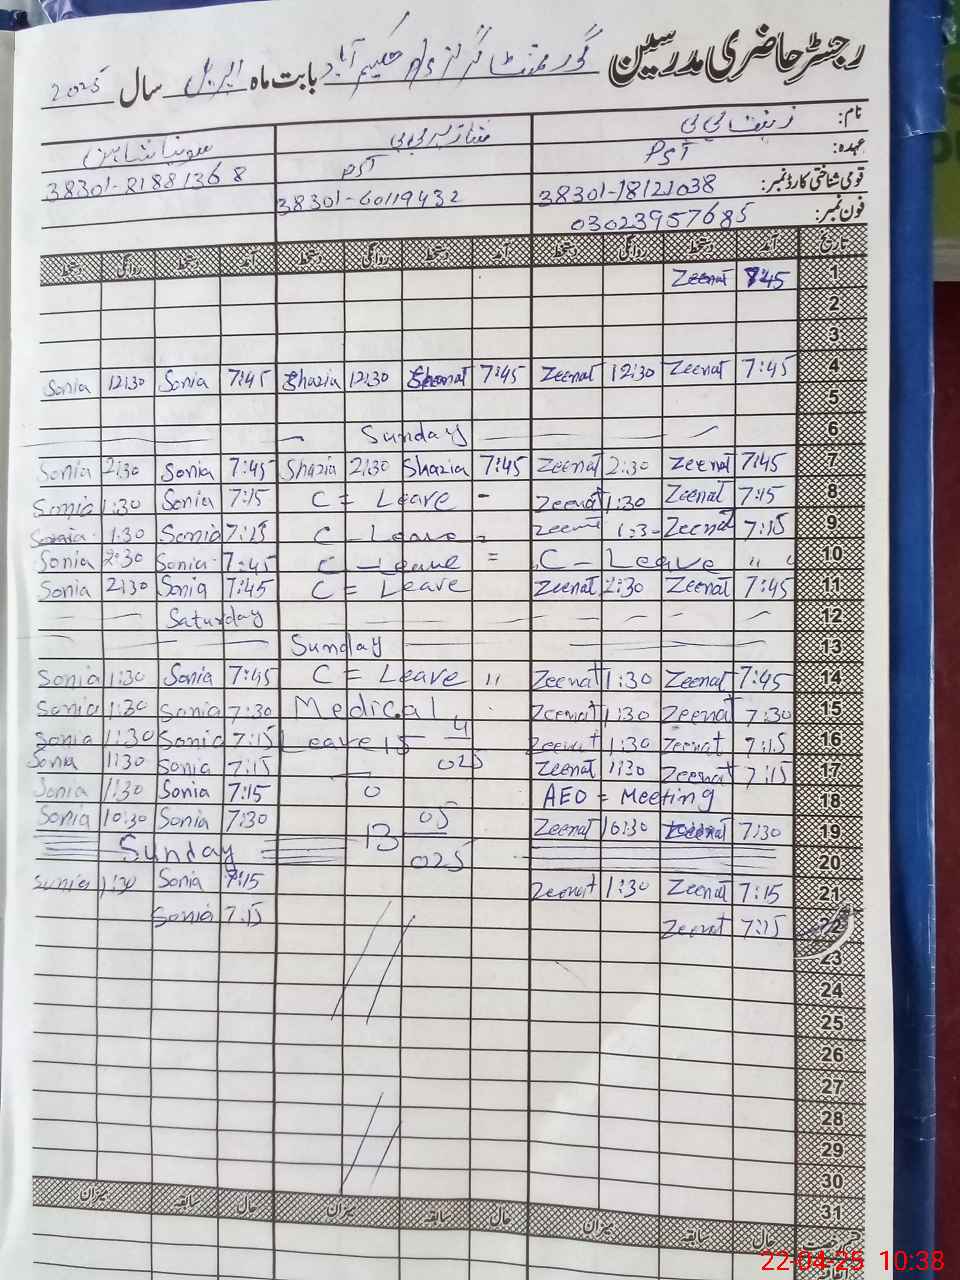 رجسٹر حاضری مدرسین گورنمنٹ گرلز p/s حکیم آباد بابت ماہ اپریل سال 2025
نام: زینت بی بی
عہدہ: PST PST سونیا شاہین
قومی شناختی کارڈ نمبر: 38301-18121038 38301-60119432 38301-81881368
فون نمبر: 03023957685
تاریخ آمد دستخط روانگی دستخط آمد دستخط روانگی دستخط آمد دستخط روانگی دستخط
Zeenat 7:45 1
2
3
Sonia 12:30 Sonia 7:45 Shazia 12:30 7:45 Zeenat 12:30 Zeenat 7:45 4
5
Sunday 6
Sonia 2:30 Sonia 7:45 Shazia 2:30 Shazia 7:45 Zeenat 2:30 Zeenat 7:45 7
Sonia 1:30 Sonia 7:15 C = Leave - Zeenat 1:30 Zeenat 7:15 8
Sonia 1:30 Sonia 7:15 C - Leave = Zeenat 1:3- Zeenat 7:15 9
Sonia 2:30 Sonia 7:45 C - Leave = C - Leave " " 10
Sonia 2:30 Sonia 7:45 C = Leave Zeenat 2:30 Zeenat 7:45 11
Saturday 12
Sunday 13
Sonia 1:30 Sonia 7:45 C = Leave " Zeenat 1:30 Zeenat 7:45 14
Sonia 1:30 Sonia 7:30 Medical Zeenat 1:30 Zeenat 7:30 15
Sonia 1:30 Sonia 7:15 Leave 15 4 Zeenat 1:30 Zeenat 7:15 16
Sonia 1:30 Sonia 7:15 025 Zeenat 1:30 Zeenat 7:15 17
Sonia 1:30 Sonia 7:15 AEO = Meeting 18
Sonia 10:30 Sonia 7:30 13 05 Zeenat 10:30 Zeenat 7:30 19
Sunday 025 20
Sonia 1:30 Sonia 7:15 Zeenat 1:30 Zeenat 7:15 21
Sonia 7:15 Zeenat 7:15 22
23
24
25
26
27
28
29
30
31
حال سابقہ میزان حال سابقہ میزان حال سابقہ میزان
22-04-25 10:38